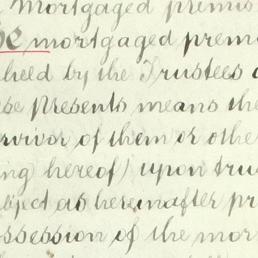 Mortgaged premis
se mortgaged prem
held by the Trustees
se Presents means the
rvivor of them or othe
ing hereof) upon trus
bject as hereinafter pr
ossession of the mor